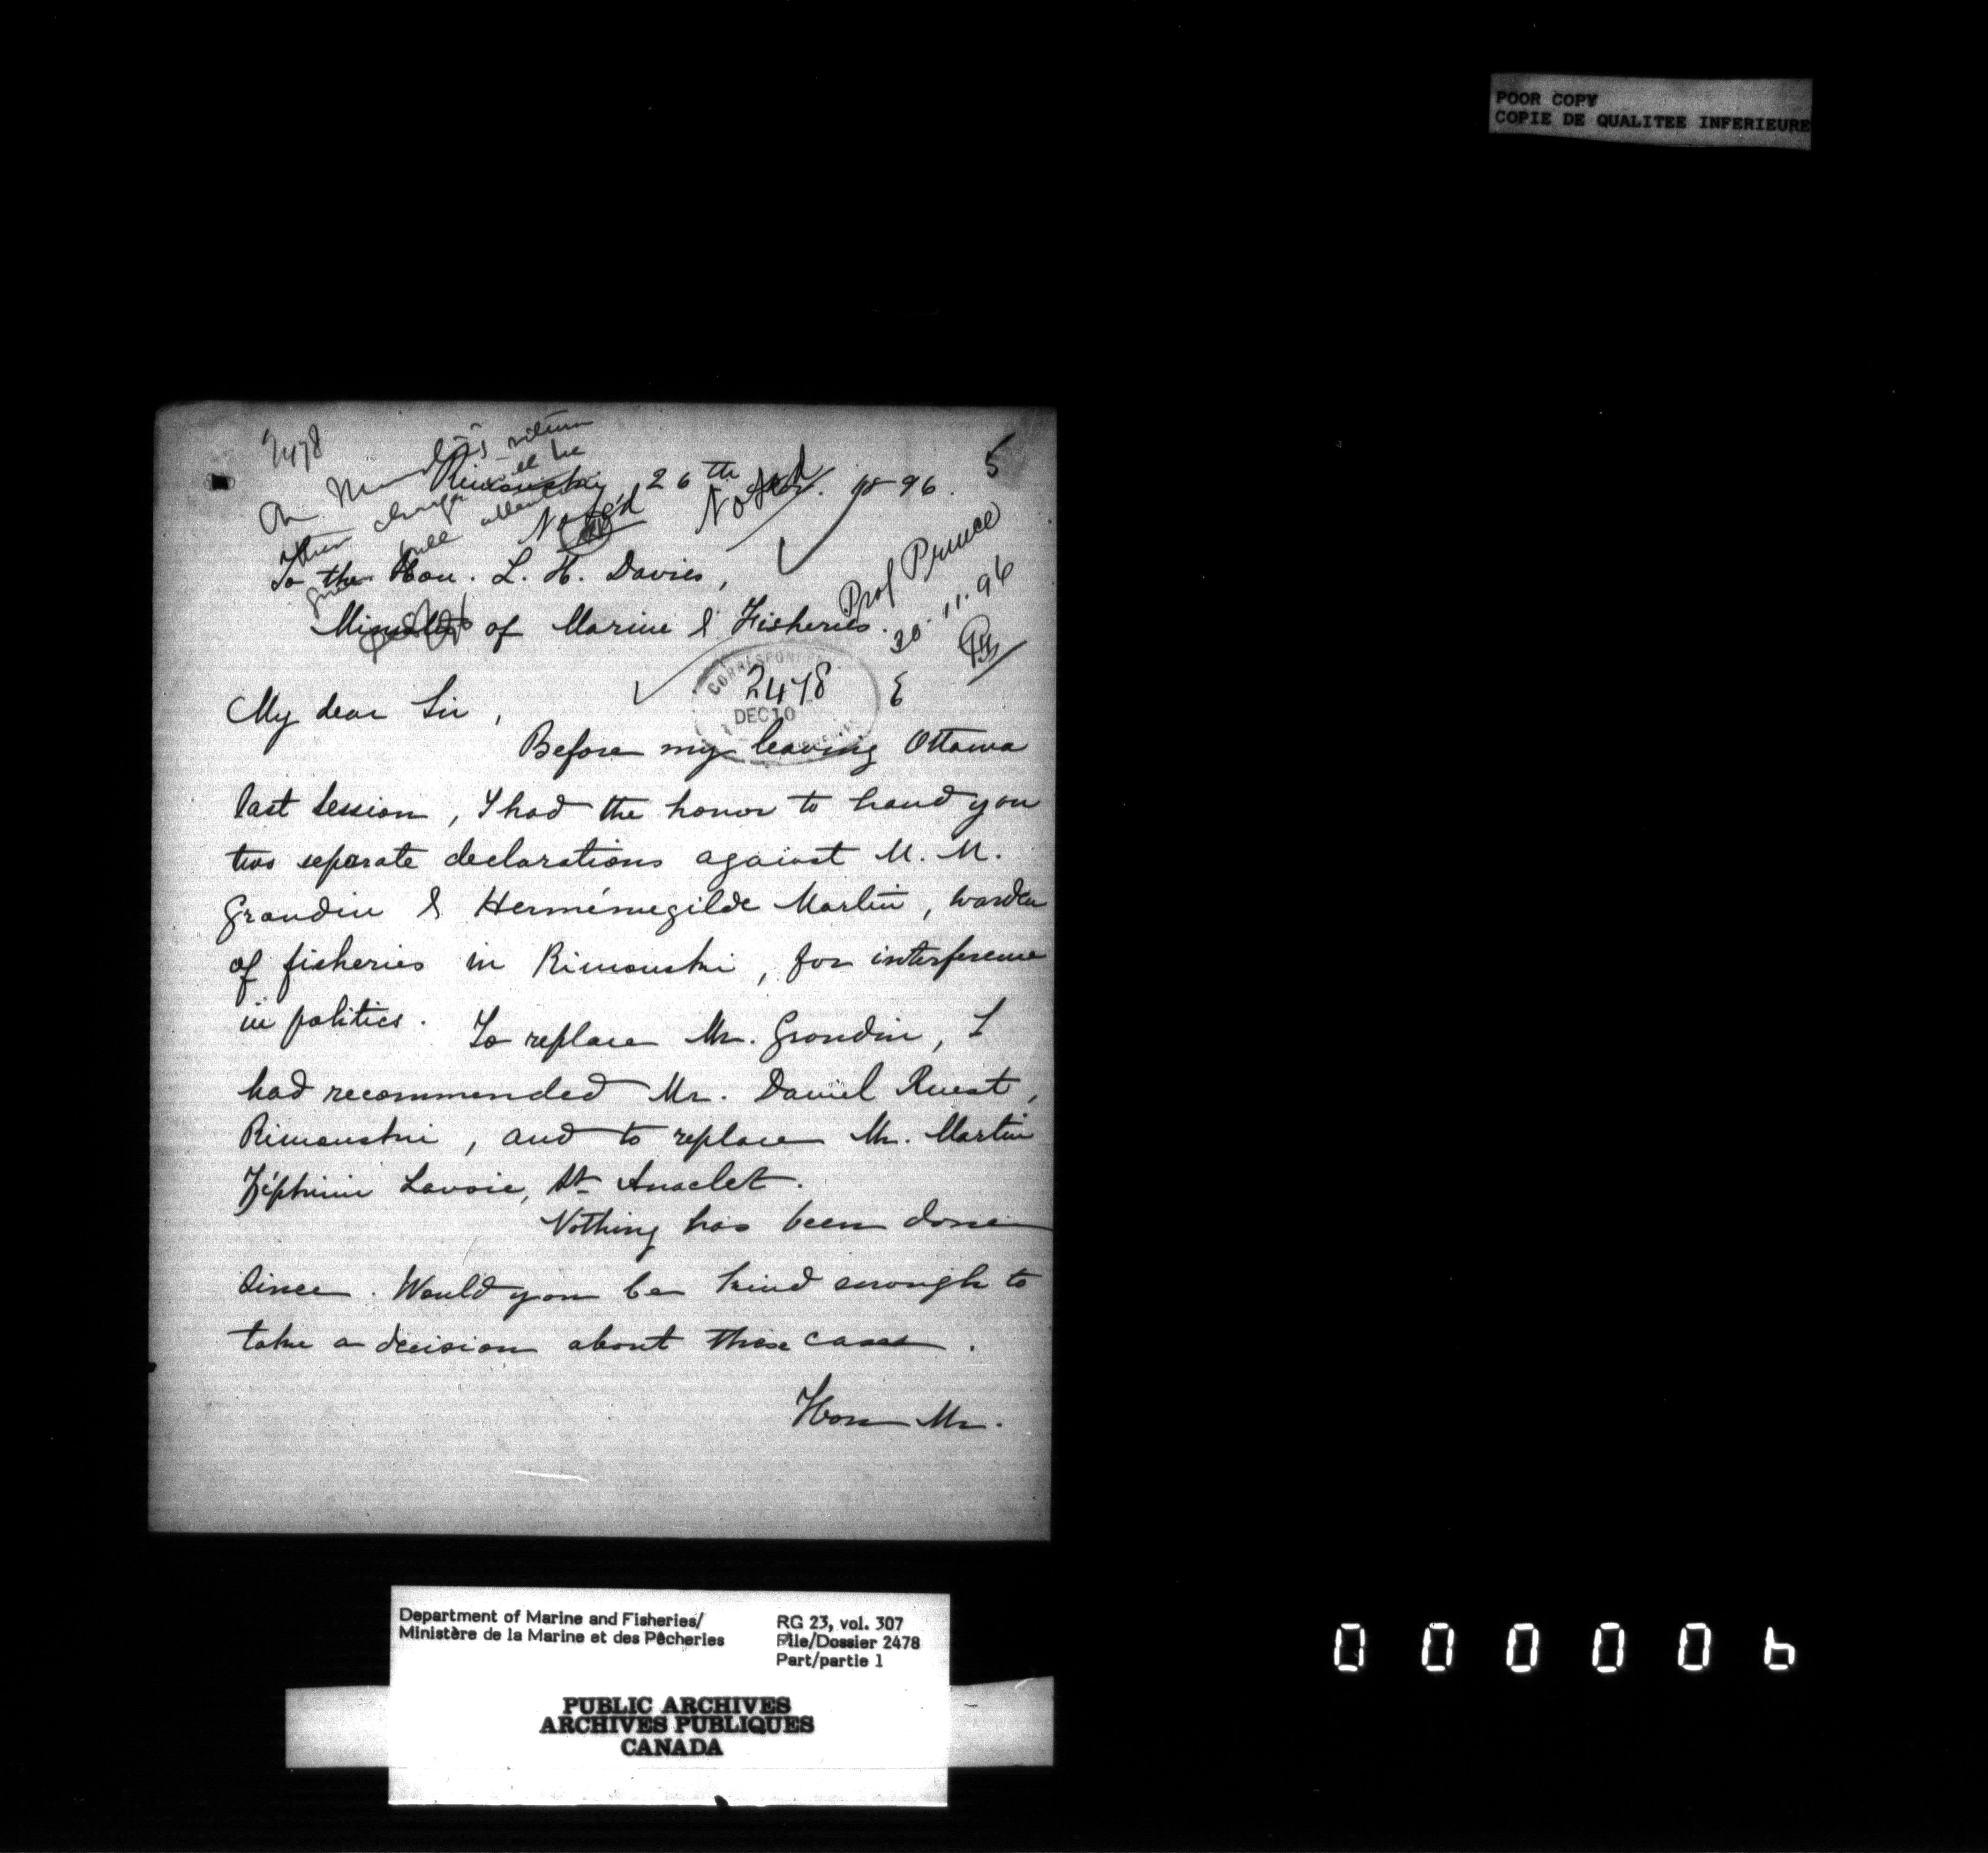 POOR COPY
COPIE DE QUALITEE INFERIEURE
2478
5
Rimouski, 26th Nov. 1896.
Noted
Noted
To the Hon. L. H. Davies,
Minister of Marine & Fisheries.
Prof Prince
30.11.96
CORRESPONDENCE
2478
DEC 10
E
My dear Sir,
Before my leaving Ottawa
last session, I had the honor to hand you
two separate declarations against M. M.
Grondin & Herménegilde Martin, warden
of fisheries in Rimouski, for interference
in politics. To replace Mr. Grondin, I
had recommended Mr. Daniel Ruest,
Rimouski, and to replace Mr. Martin
Zéphirin Lavoie, St Anaclet.
Nothing has been done
since. Would you be kind enough to
take a decision about those cases.
Hon Mr.
Department of Marine and Fisheries/
Ministère de la Marine et des Pêcheries
RG 23, vol. 307
File/Dossier 2478
Part/partie 1
PUBLIC ARCHIVES
ARCHIVES PUBLIQUES
CANADA
000006